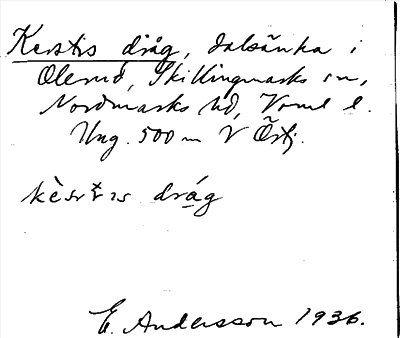 Kerstis dråg, dalsänka i
Olerud, Skillingmarks sn,
Nordmarks hd, Värml l.
Ung. 500 m V Östj.
drág
E. Andersson 1936.